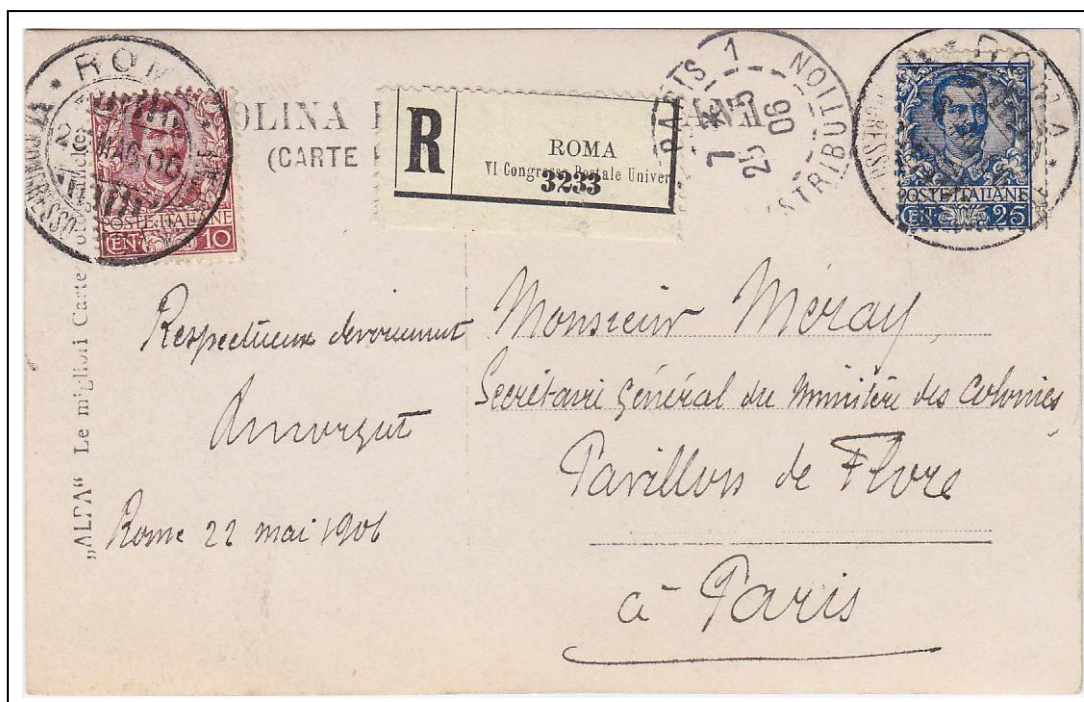 ROMA
CONGRESSO
MAG 06
POSTE ITALIANE
CEN 10
OLINA P
(CARTE P
R
ROMA
VI Congresso Postale Univer
3233
PARIS 1
25 5
06
DISTRIBUTION
ROMA
POSTE ITALIANE
CEN 25
„ALPA“ Le migliori Carte
Respectueux dévouement
Rome 22 mai 1906
Monsieur Méray,
Secrétaire Général du Ministère des Colonies
Pavillon de Flore
à Paris